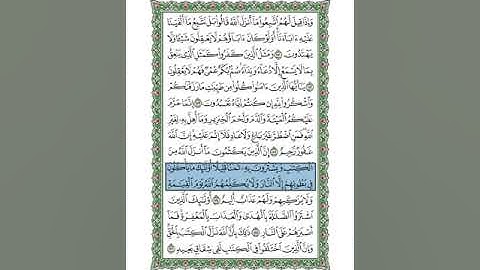 وَإِذَا قِيلَ لَهُمُ اتَّبِعُوا مَا أَنزَلَ اللَّهُ قَالُوا بَلْ نَتَّبِعُ مَا أَلْفَيْنَا
عَلَيْهِ ءَابَاءَنَا أَوَلَوْ كَانَ ءَابَاؤُهُمْ لَا يَعْقِلُونَ شَيْئًا وَلَا
يَهْتَدُونَ ١٧٠ وَمَثَلُ الَّذِينَ كَفَرُوا كَمَثَلِ الَّذِي يَنْعِقُ
بِمَا لَا يَسْمَعُ إِلَّا دُعَاءً وَنِدَاءً صُمٌّ بُكْمٌ عُمْيٌ فَهُمْ لَا يَعْقِلُونَ
١٧١ يَاأَيُّهَا الَّذِينَ ءَامَنُوا كُلُوا مِن طَيِّبَاتِ مَا رَزَقْنَاكُمْ
وَاشْكُرُوا لِلَّهِ إِن كُنتُمْ إِيَّاهُ تَعْبُدُونَ ١٧٢ إِنَّمَا حَرَّمَ
عَلَيْكُمُ الْمَيْتَةَ وَالدَّمَ وَلَحْمَ الْخِنزِيرِ وَمَا أُهِلَّ بِهِ لِغَيْرِ
اللَّهِ فَمَنِ اضْطُرَّ غَيْرَ بَاغٍ وَلَا عَادٍ فَلَا إِثْمَ عَلَيْهِ إِنَّ اللَّهَ
غَفُورٌ رَّحِيمٌ ١٧٣ إِنَّ الَّذِينَ يَكْتُمُونَ مَا أَنزَلَ اللَّهُ مِنَ
الْكِتَابِ وَيَشْتَرُونَ بِهِ ثَمَنًا قَلِيلًا أُولَئِكَ مَا يَأْكُلُونَ
فِي بُطُونِهِمْ إِلَّا النَّارَ وَلَا يُكَلِّمُهُمُ اللَّهُ يَوْمَ الْقِيَامَةِ
وَلَا يُزَكِّيهِمْ وَلَهُمْ عَذَابٌ أَلِيمٌ ١٧٤ أُولَئِكَ الَّذِينَ
اشْتَرَوُا الضَّلَالَةَ بِالْهُدَى وَالْعَذَابَ بِالْمَغْفِرَةِ فَمَا
أَصْبَرَهُمْ عَلَى النَّارِ ١٧٥ ذَلِكَ بِأَنَّ اللَّهَ نَزَّلَ الْكِتَابَ بِالْحَقِّ
وَإِنَّ الَّذِينَ اخْتَلَفُوا فِي الْكِتَابِ لَفِي شِقَاقٍ بَعِيدٍ ١٧٦